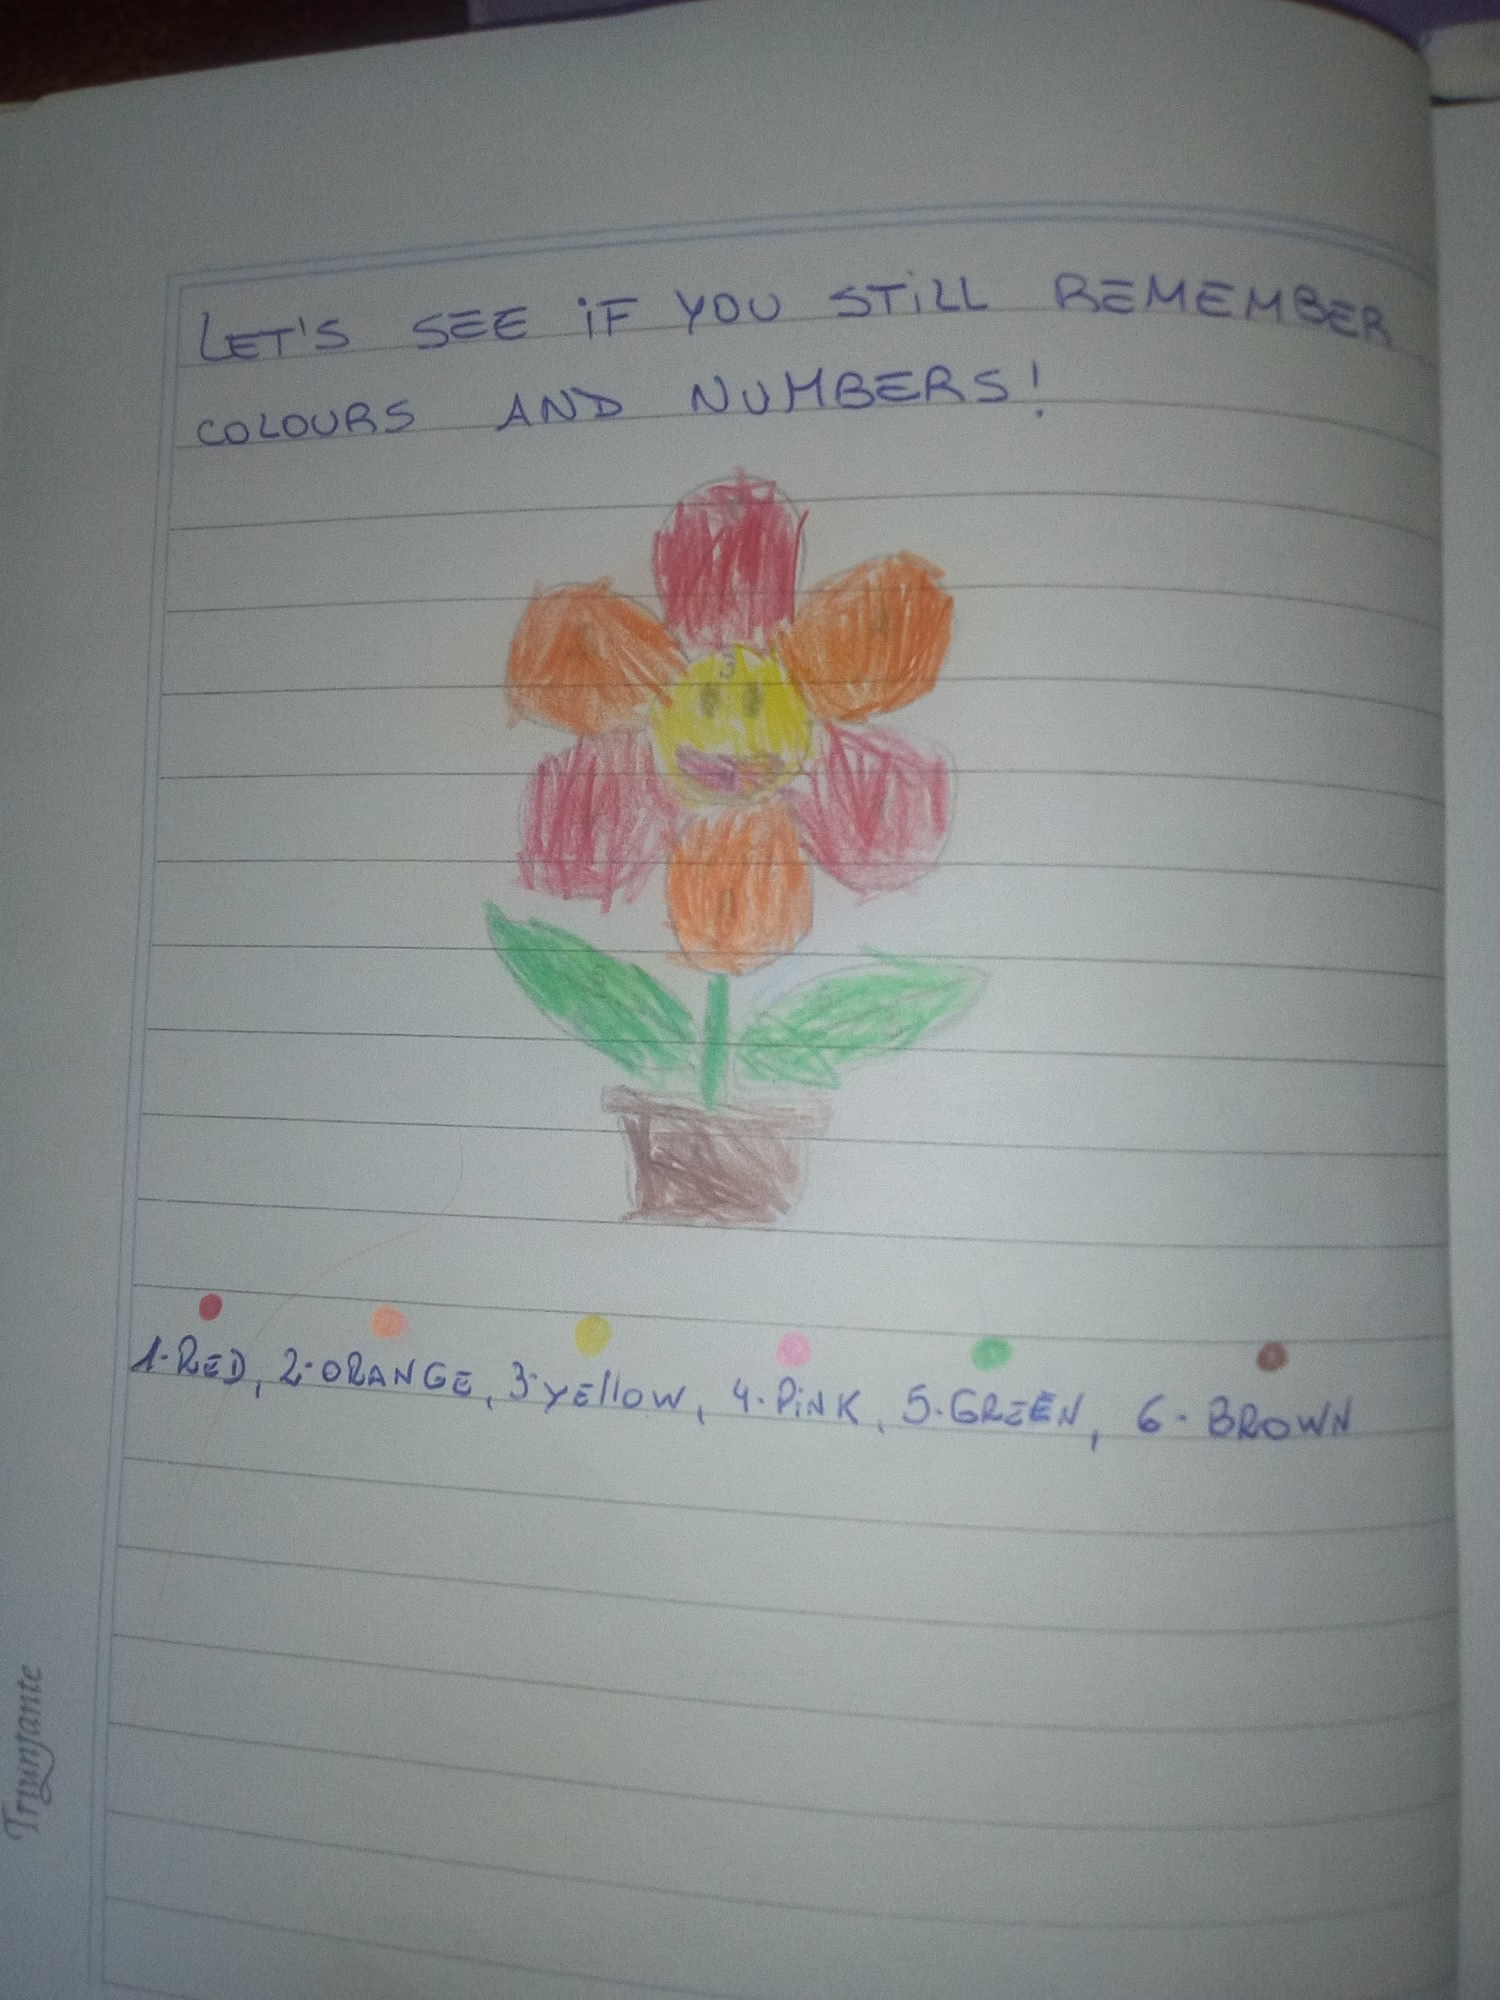 LET'S SEE IF YOU STILL REMEMBER
COLOURS AND NUMBERS!
3
1-RED, 2-ORANGE, 3-YELLOW, 4-PINK, 5-GREEN, 6-BROWN
Triunfante